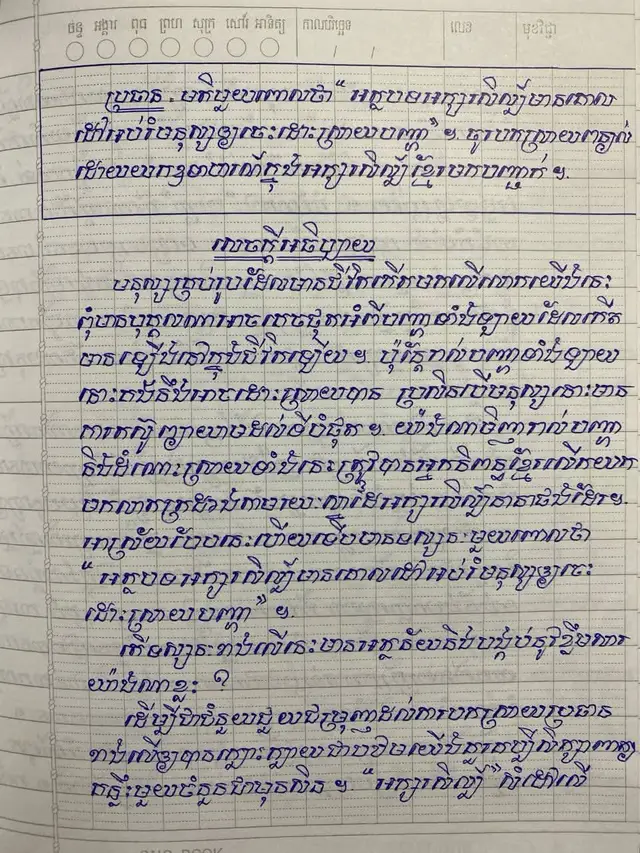 ច័ន្ទ អង្គារ ពុធ ព្រហ សុក្រ សៅរ៍ អាទិត្យ កាលបរិច្ឆេទ លេខ មុខវិជ្ជា
ប្រធាន . មតិមួយពោលថា “ អត្ថបទអក្សរសិល្ប៍មានគោល
ដៅអប់រំមនុស្សឲ្យចេះដោះស្រាយបញ្ហា” ។ ចូរបកស្រាយពន្យល់
ដោយយកឧទាហរណ៍ក្នុងអក្សរសិល្ប៍ខ្មែរមកបញ្ជាក់ ។
សេចក្ដីអធិប្បាយ
មនុស្សគ្រប់រូបដែលមានជីវិតកើតមកលើលោកយើងនេះ
ពុំមានបុគ្គលណាអាចគេចផុតអំពីបញ្ហាទាំងឡាយដែលកើត
មានឡើងនៅក្នុងជីវិតឡើយ ។ ប៉ុន្តែរាល់បញ្ហាទាំងឡាយ
នោះគង់នឹងអាចដោះស្រាយបាន ប្រសិនបើមនុស្សនោះមាន
ការតស៊ូព្យាយាមដល់ទីបំផុត ។ យ៉ាងណាមិញរាល់បញ្ហា
និងដំណោះស្រាយទាំងនេះត្រូវបានអ្នកនិពន្ធខ្មែរលើកយក
មកលាតត្រដាងតាមរយៈស្នាដៃអក្សរសិល្ប៍នានាផងដែរ។
អាស្រ័យបែបនេះហើយទើបមានទស្សនៈមួយពោលថា
“អត្ថបទអក្សរសិល្ប៍មានគោលដៅអប់រំមនុស្សឲ្យចេះ
ដោះស្រាយបញ្ហា” ។
តើទស្សនៈខាងលើនេះមានអត្ថន័យនិងបង្កប់នូវខ្លឹមសារ
យ៉ាងណាខ្លះ ?
ដើម្បីជាជំនួយជួយជម្រុញដល់ការបកស្រាយប្រធាន
ខាងលើឲ្យបានក្បោះក្បាយជាបឋមយើងគួរគប្បីសិក្សាពាក្យ
គន្លឹះមួយចំនួនជាមុនសិន ។ “អក្សរសិល្ប៍” សំដៅលើ